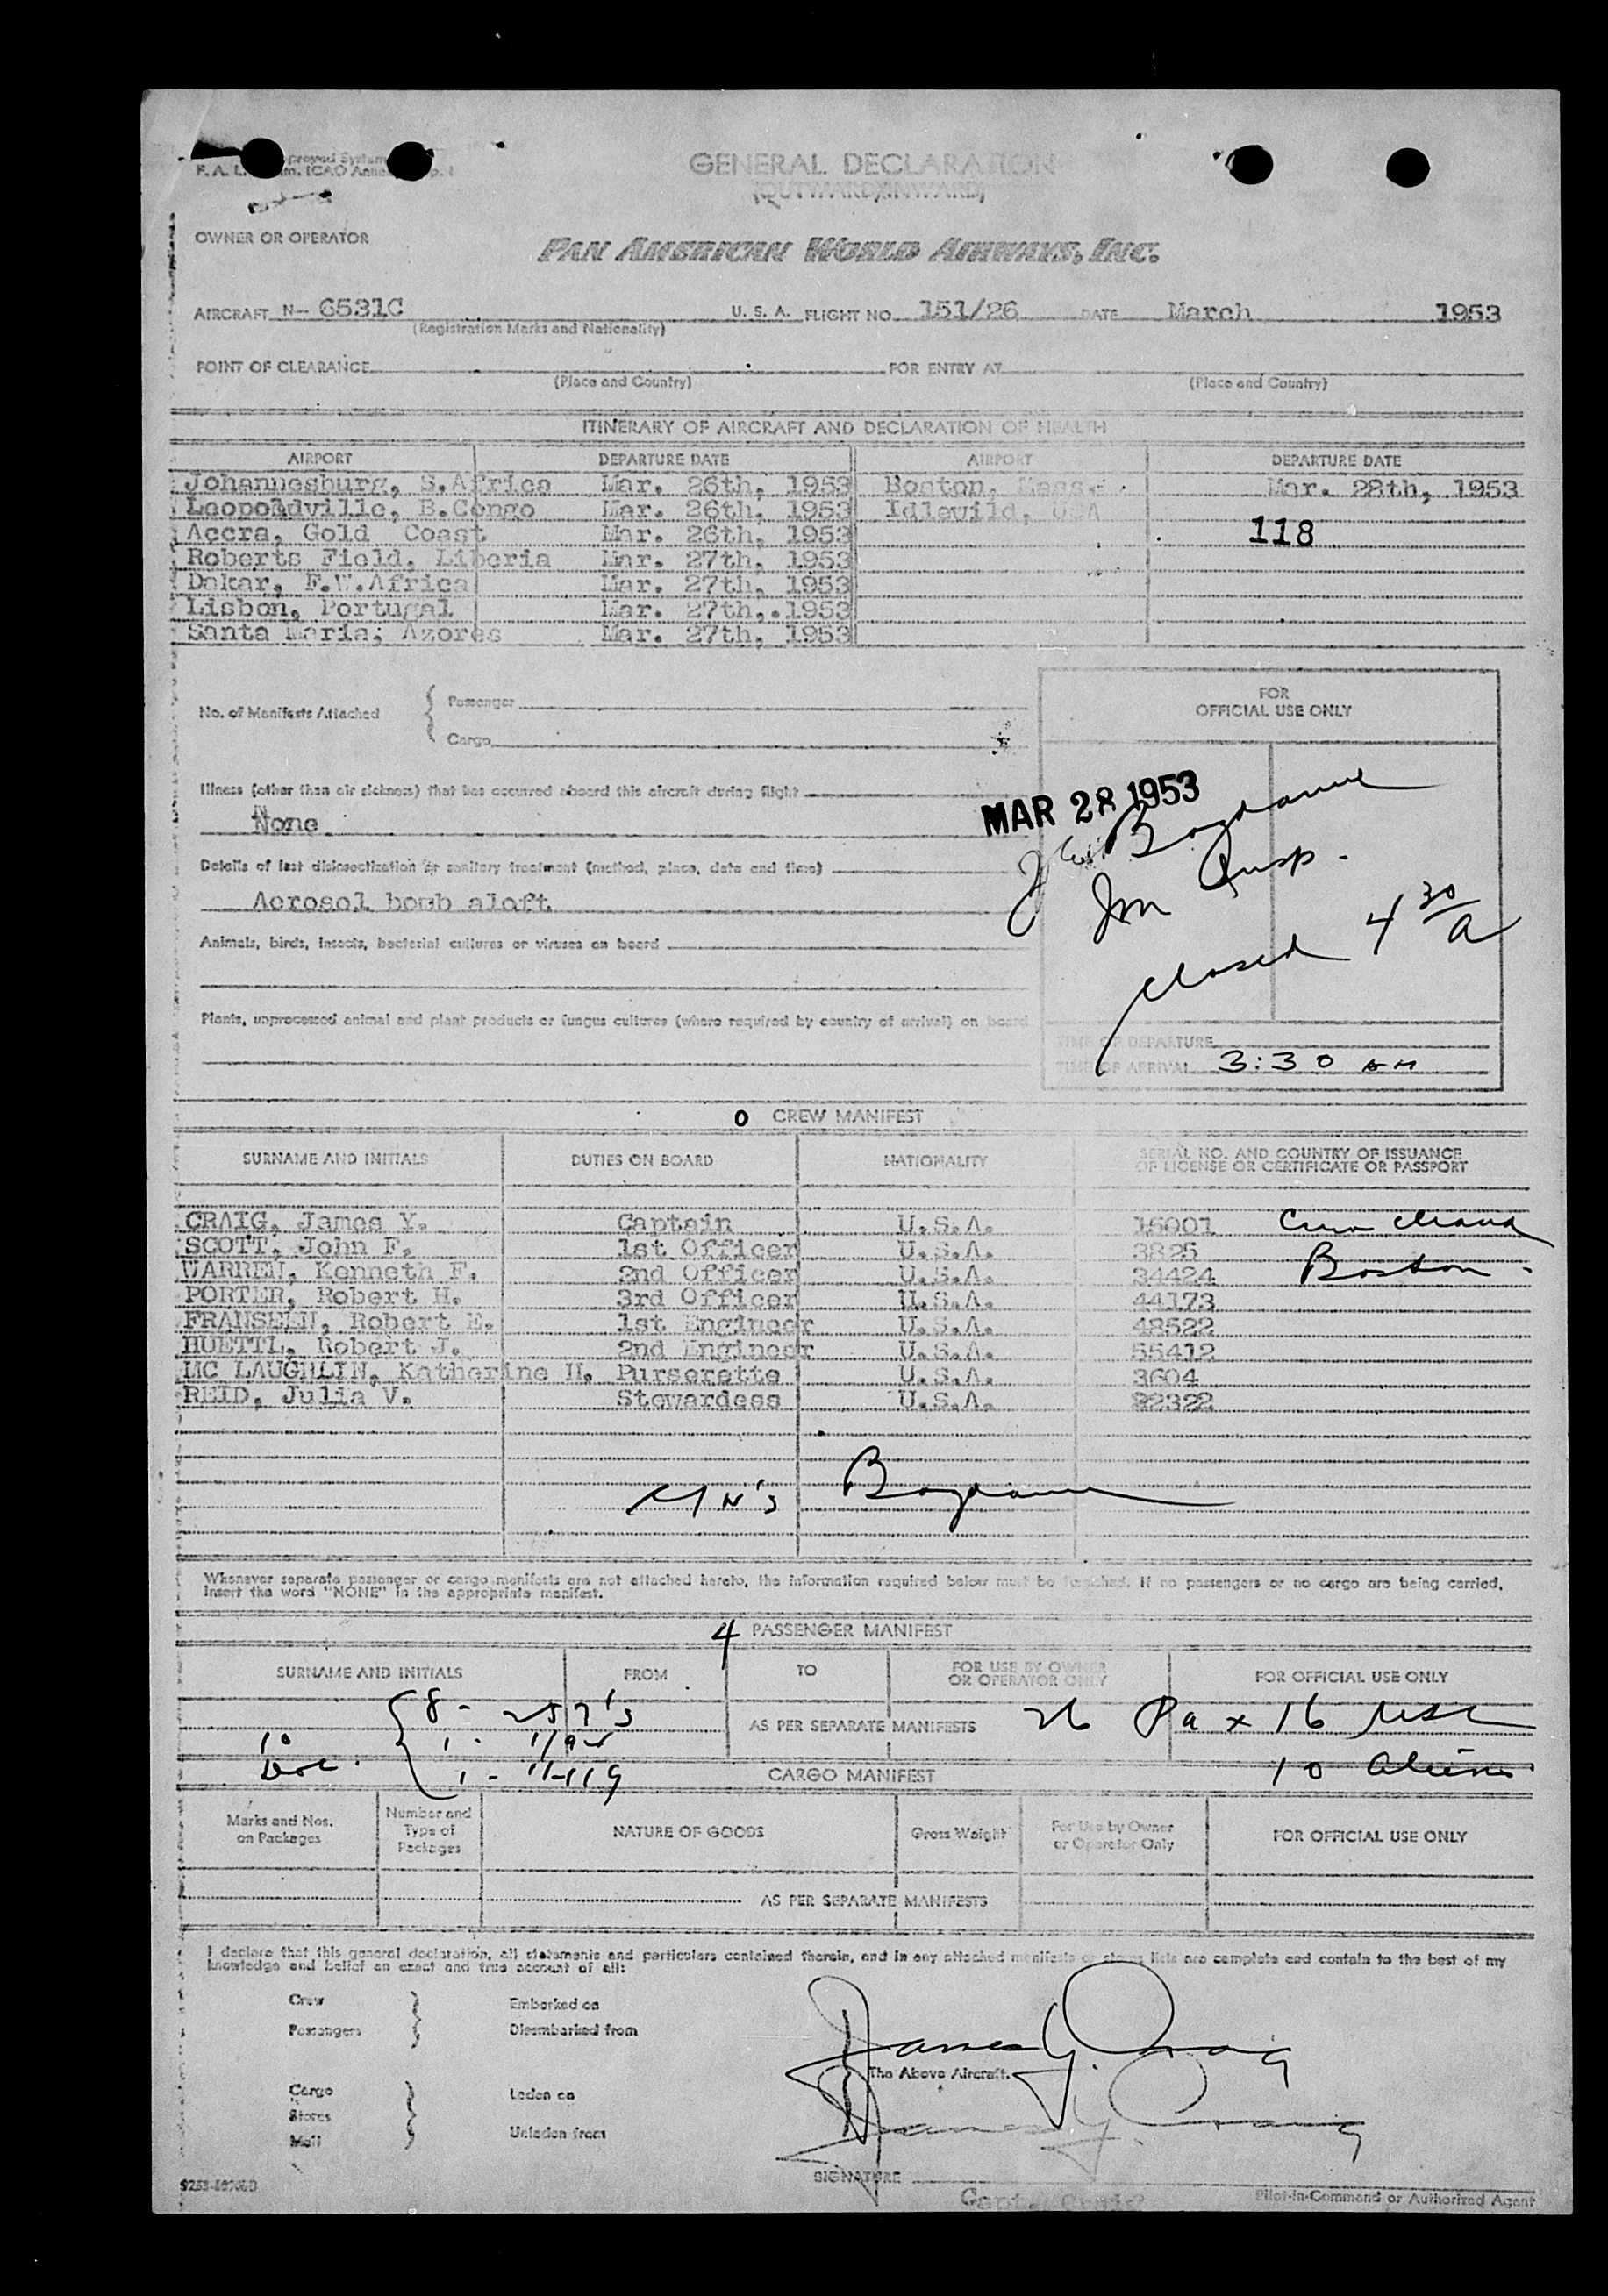 GENERAL DECLARATION
(OUTWARD/INWARD)
OWNER OR OPERATOR
PAN AMERICAN WORLD AIRWAYS, INC.
AIRCRAFT N- 6531C U. S. A. FLIGHT NO. 151/26 DATE March 1953
(Registration Marks and Nationality)
POINT OF CLEARANCE FOR ENTRY AT
(Place and Country) (Place and Country)
ITINERARY OF AIRCRAFT AND DECLARATION OF HEALTH
AIRPORT DEPARTURE DATE AIRPORT DEPARTURE DATE
Johannesburg, S.Africa Mar. 26th, 1953 Boston, Mass. Mar. 28th, 1953
Leopoldville, B.Congo Mar. 26th, 1953 Idlewild, USA
Accra, Gold Coast Mar. 26th, 1953 118
Roberts Field, Liberia Mar. 27th, 1953
Dakar, F.W.Africa Mar. 27th, 1953
Lisbon, Portugal Mar. 27th,.1953
Santa Maria, Azores Mar. 27th, 1953
No. of Manifests Attached
Passenger
Cargo
FOR
OFFICIAL USE ONLY
Illness (other than air sickness) that has occurred aboard this aircraft during flight
None
MAR 28 1953
Details of last disinsectization or sanitary treatment (method, place, date and time)
Aerosol bomb aloft
Imm Insp.
Animals, birds, insects, bacterial cultures or viruses on board
closed 4 30 A
Plants, unprocessed animal and plant products or fungus cultures (where required by country of arrival) on board
TIME OF DEPARTURE
TIME OF ARRIVAL 3:30 AM
0 CREW MANIFEST
SURNAME AND INITIALS DUTIES ON BOARD NATIONALITY SERIAL NO. AND COUNTRY OF ISSUANCE
OF LICENSE OR CERTIFICATE OR PASSPORT
CRAIG, James Y. Captain U.S.A. 16001
SCOTT, John F. 1st Officer U.S.A. 3825
WARREN, Kenneth F. 2nd Officer U.S.A. 34424 Boston
PORTER, Robert H. 3rd Officer U.S.A. 44173
FRANSEEN, Robert E. 1st Engineer U.S.A. 48522
HUETTL, Robert J. 2nd Engineer U.S.A. 55412
MC LAUGHLIN, Katherine H. Purserette U.S.A. 3604
REID, Julia V. Stewardess U.S.A. 22322
Whenever separate passenger or cargo manifests are not attached hereto, the information required below must be furnished. If no passengers or no cargo are being carried,
insert the word "NONE" in the appropriate manifest.
4 PASSENGER MANIFEST
SURNAME AND INITIALS FROM TO FOR USE BY OWNER
OR OPERATOR ONLY FOR OFFICIAL USE ONLY
8 - 257's
AS PER SEPARATE MANIFESTS 26 Pax 16 USC
10 Doc.
10 Aliens
CARGO MANIFEST
Marks and Nos.
on Packages
Number and
Type of
Packages
NATURE OF GOODS
Gross Weight
For Use by Owner
or Operator Only
FOR OFFICIAL USE ONLY
AS PER SEPARATE MANIFESTS
I declare that this general declaration, all statements and particulars contained therein, and in any attached manifests or stores lists are complete and contain to the best of my
knowledge and belief an exact and true account of all:
Crew Embarked on
Passengers Disembarked from
James Y. Craig
The Above Aircraft.
Cargo Laden on
Stores
James Y. Craig
Mail Unladen from
SIGNATURE
Capt. Craig
Pilot-in-Command or Authorized Agent